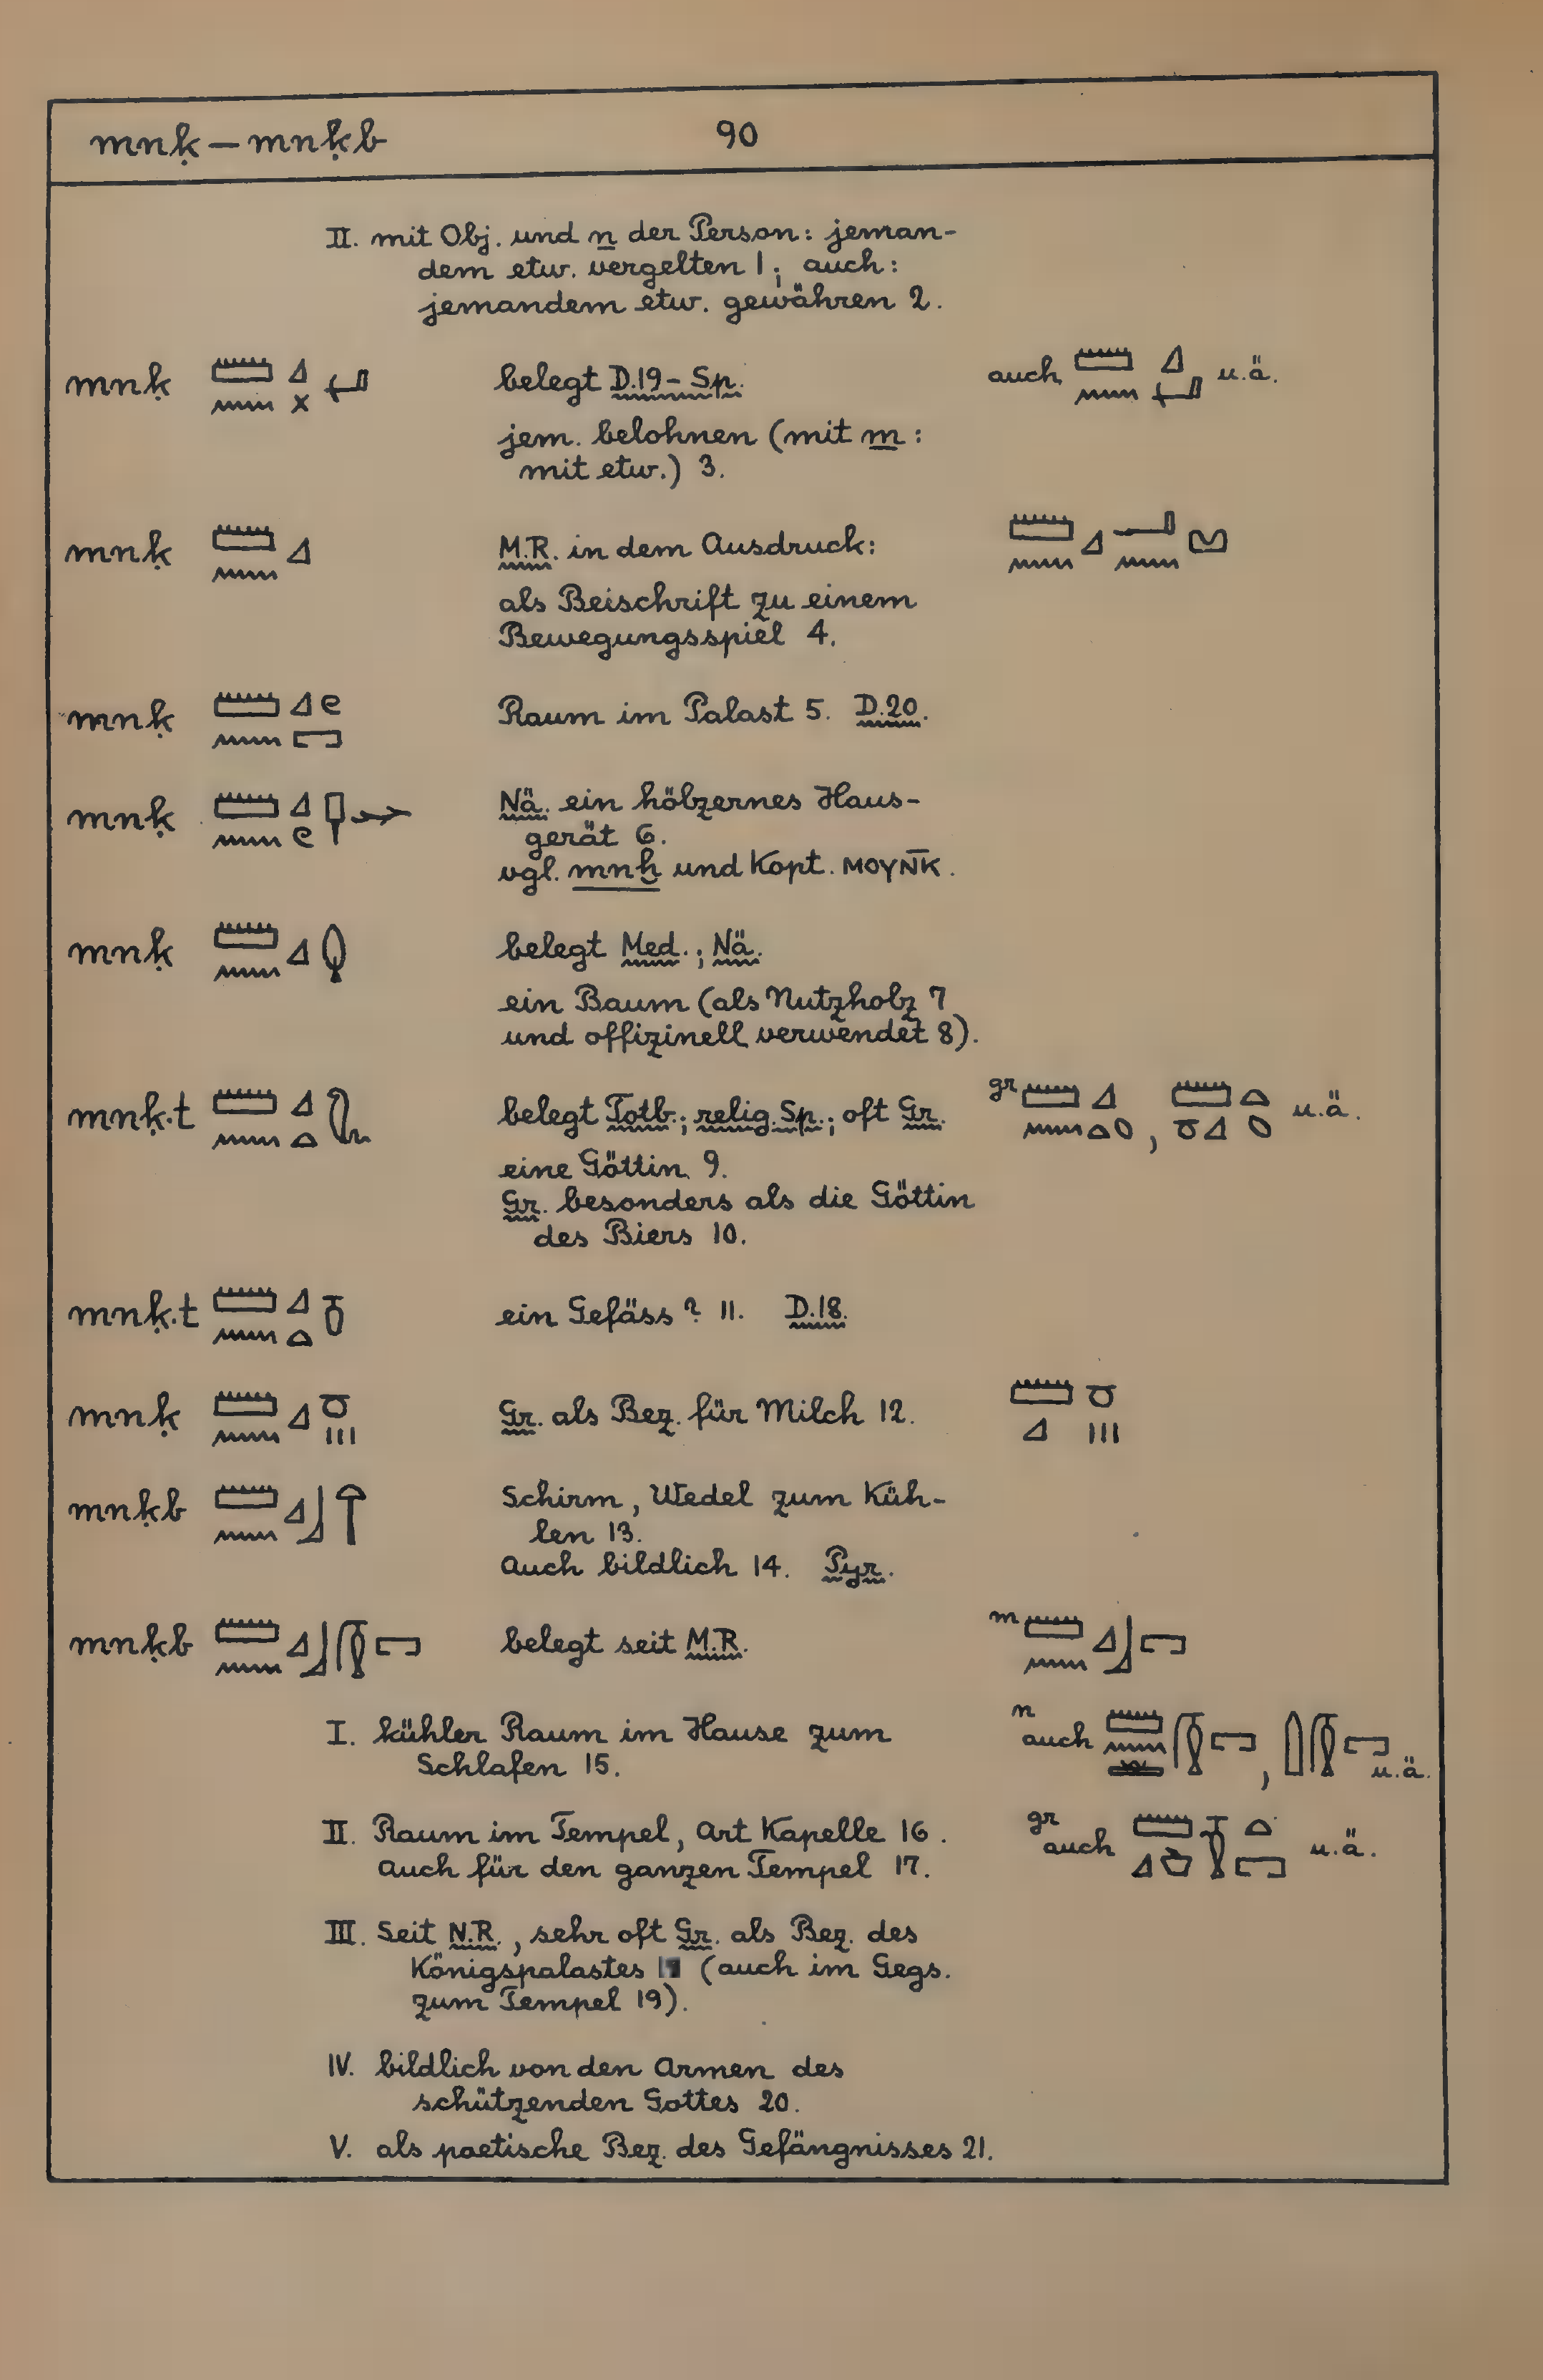 mnḳ – mnḳb 90
II. mit Obj. und n der Person: jeman-
dem etw. vergelten 1; auch:
jemandem etw. gewähren 2.
mnḳ belegt D.19 - Sp. auch u.ä.
jem. belohnen (mit m:
mit etw.) 3.
mnḳ M.R. in dem Ausdruck:
als Beischrift zu einem
Bewegungsspiel 4.
mnḳ Raum im Palast 5. D.20.
mnḳ Nä. ein hölzernes Haus-
gerät 6.
vgl. mnḫ und Kopt. ⲙⲟⲩⲛ̅ⲕ.
mnḳ belegt Med.; Nä.
ein Baum (als Nutzholz 7
und offizinell verwendet 8).
mnḳ.t belegt Totb.; relig. Sp.; oft Gr. gr , u.ä.
eine Göttin 9.
Gr. besonders als die Göttin
des Biers 10.
mnḳ.t ein Gefäss? 11. D.18.
mnḳ Gr. als Bez. für Milch 12.
mnḳb Schirm, Wedel zum Küh-
len 13.
Auch bildlich 14. Pyr.
mnḳb belegt seit M.R. m
I. kühler Raum im Hause zum n auch , u.ä.
Schlafen 15.
II. Raum im Tempel, Art Kapelle 16. gr auch u.ä.
Auch für den ganzen Tempel 17.
III. Seit N.R., sehr oft Gr. als Bez. des
Königspalastes (auch im Gegs.
zum Tempel 19).
IV. bildlich von den Armen des
schützenden Gottes 20.
V. als poetische Bez. des Gefängnisses 21.